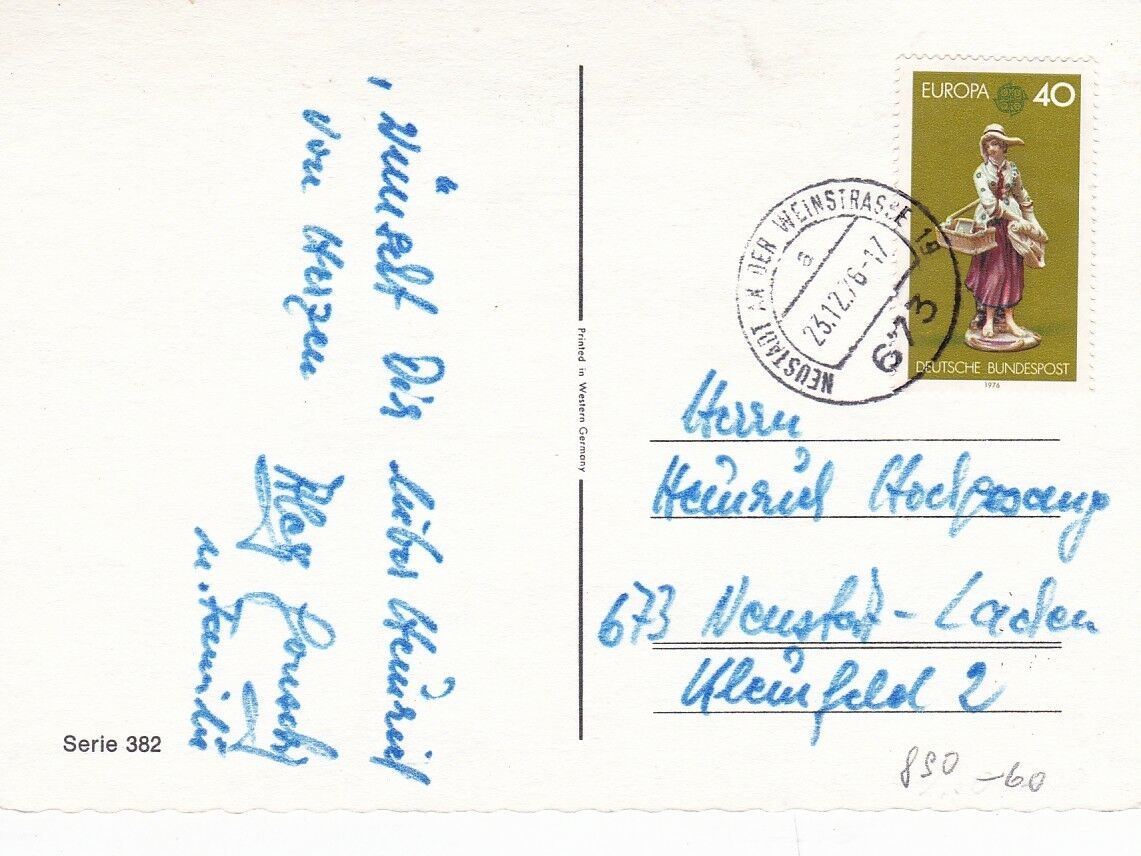 , wünscht Dir lieber Heinrich
von Herzen
u. Familie
Serie 382
Printed in Western Germany
EUROPA 40
DEUTSCHE BUNDESPOST
1976
NEUSTADT AN DER WEINSTRASSE 19
a
23.12.76-17
673
Herrn
Heinrich
673 Neustadt-Lachen
Kleinfeld 2
890 -60